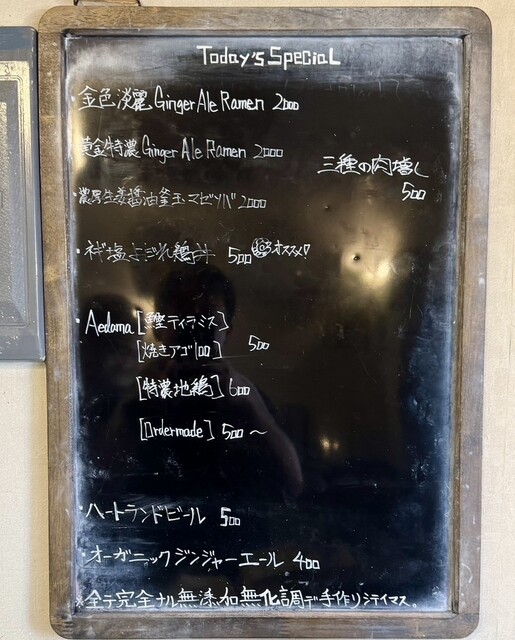 Today's Special
・金色淡麗 Ginger Ale Ramen 2000
黄金特濃 Ginger Ale Ramen 2000
三種の肉増し
500
・濃厚生姜醤油釜玉マゼソバ 2000
・塩よだれ鶏丼 500 オススメ!
・Aedama [鰹ティラミス]
[焼きアゴ100] 500
[特濃地鶏] 600
[Ordermade] 500～
・ハートランドビール 500
・オーガニックジンジャーエール 400
※全テ完全ナル無添加無化調デ手作リシテイマス。